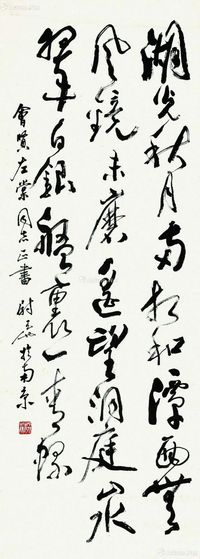 湖光秋月兩相和潭面無
風鏡未磨遙望洞庭山水
翠白銀盤裏一青螺
會賢左棠同志正書 尉天池於南京